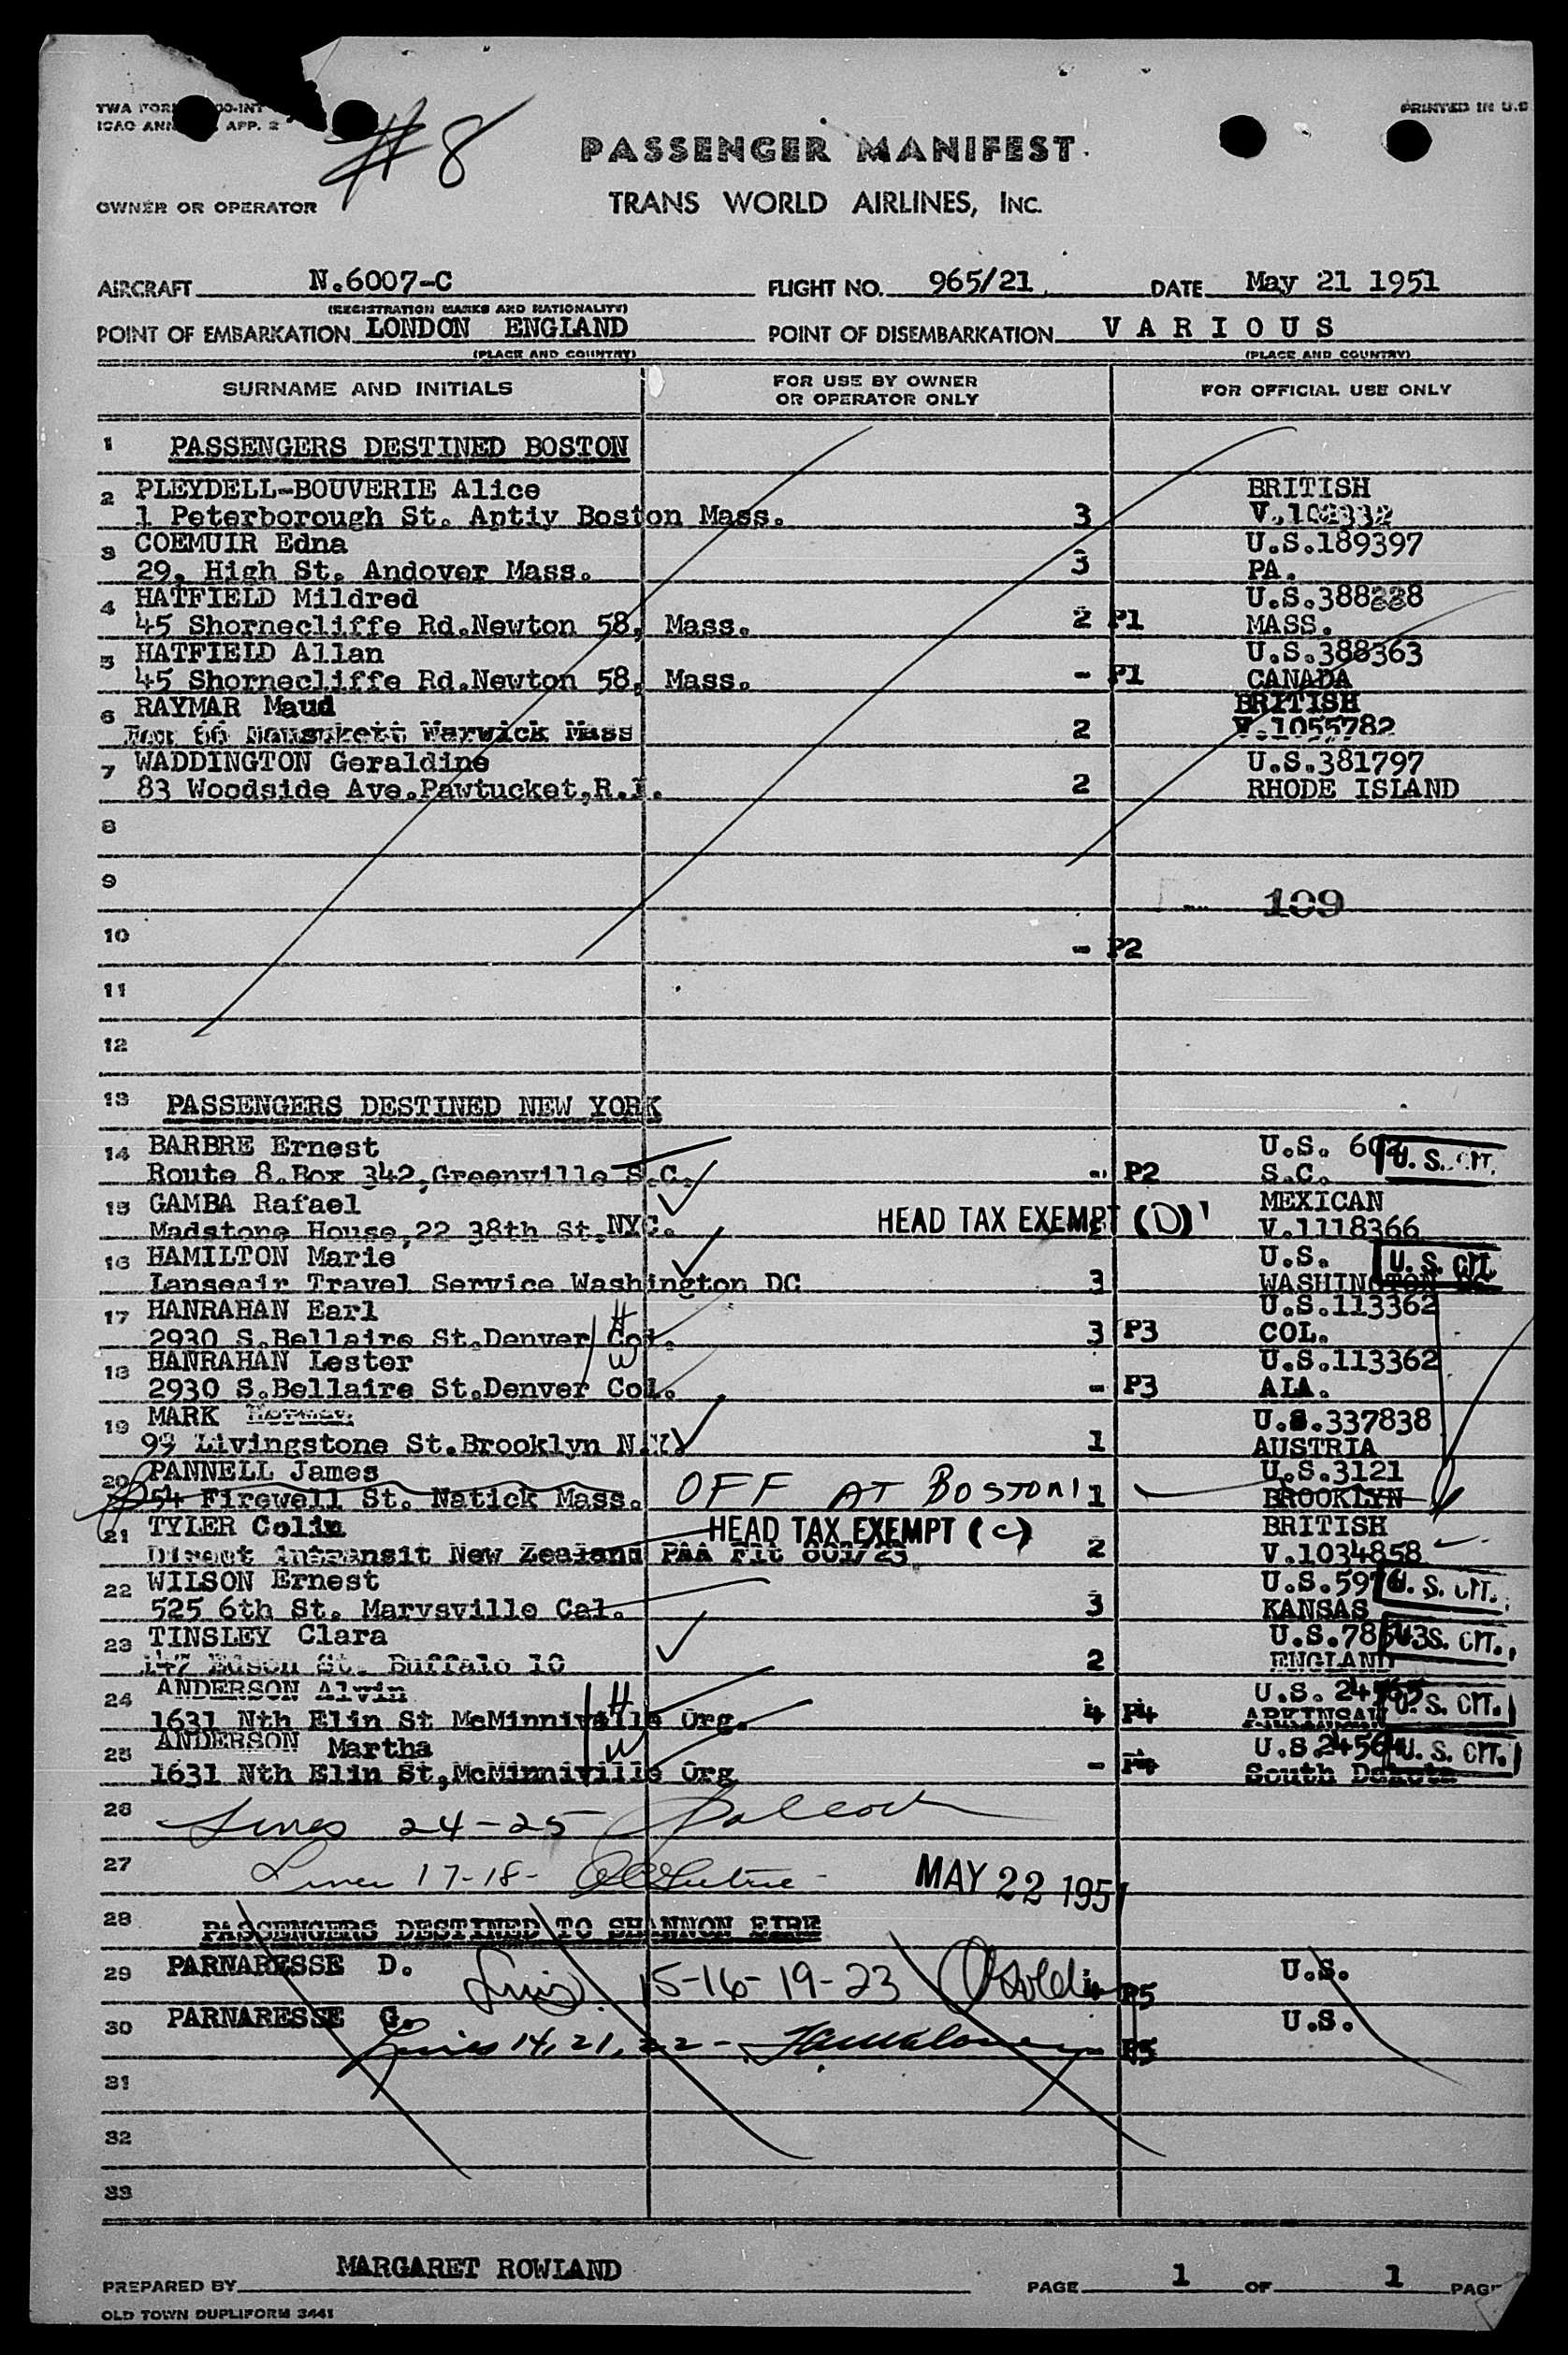 #8
PRINTED IN U.S
APP. 2
PASSENGER MANIFEST
OWNER OR OPERATOR
TRANS WORLD AIRLINES, INC.
AIRCRAFT N.6007-C FLIGHT NO. 965/21 DATE May 21 1951
(REGISTRATION MARKS AND NATIONALITY)
POINT OF EMBARKATION LONDON ENGLAND POINT OF DISEMBARKATION V A R I O U S
(PLACE AND COUNTRY) (PLACE AND COUNTRY)
SURNAME AND INITIALS FOR USE BY OWNER OR OPERATOR ONLY FOR OFFICIAL USE ONLY
1 PASSENGERS DESTINED BOSTON
2 PLEYDELL-BOUVERIE Alice BRITISH
1 Peterborough St. Aptiy Boston Mass. 3
3 COEMUIR Edna U.S.189397
29, High St. Andover Mass. 3 PA.
4 HATFIELD Mildred
45 Shornecliffe Rd.Newton 58, Mass. 2 P1 MASS.
5 HATFIELD Allan U.S.388363
45 Shornecliffe Rd.Newton 58, Mass. - P1 CANADA
6 RAYMAR Maud BRITISH
Warwick Mass 2 V.1055782
7 WADDINGTON Geraldine U.S.381797
83 Woodside Ave.Pawtucket,R.I. 2 RHODE ISLAND
8
9 109
10 - P2
11
12
13 PASSENGERS DESTINED NEW YORK
14 BARBRE Ernest U.S. U. S. CIT.
Route 8.Box 342,Greenville S.C. - P2 S.C.
15 GAMBA Rafael MEXICAN
Madstone House,22 38th St.NYC. HEAD TAX EXEMPT (D) V.1118366
16 HAMILTON Marie U.S. U. S. CIT.
Lanseair Travel Service Washington DC 3 WASHINGTON DC
17 HANRAHAN Earl H U.S.113362
2930 S.Bellaire St.Denver Col. 3 P3 COL.
18 HANRAHAN Lester W U.S.113362
2930 S.Bellaire St.Denver Col. - P3 ALA.
19 MARK U.S.337838
99 Livingstone St.Brooklyn N.Y. 1 AUSTRIA
20 PANNELL James U.S.3121
54 Firewell St. Natick Mass. OFF AT BOSTON 1 BROOKLYN
21 TYLER Colin HEAD TAX EXEMPT (C) BRITISH
Direct Intransit New Zealand PAA Flt 001/23 2 V.1034858
22 WILSON Ernest U.S. U. S. CIT.
525 6th St. Marysville Cal. 3 KANSAS
23 TINSLEY Clara U.S. U.S. CIT.
147 Edson St. Buffalo 10 2 ENGLAND
24 ANDERSON Alvin H U.S. U. S. CIT.
1631 Nth Elin St McMinniville Org. 4 P4 ARKINSAW
25 ANDERSON Martha W U.S. U. S. CIT.
1631 Nth Elin St,McMinniville Org - P4 South Dakota
26 Lines 24-25
27 Lines 17-18- MAY 22 1951
28 PASSENGERS DESTINED TO SHANNON EIRE
29 PARNARESSE D. Lines 15-16-19-23 4 P5 U.S.
30 PARNARESSE G. Lines 14, 21, 22 - P5 U.S.
31
32
33
PREPARED BY MARGARET ROWLAND PAGE 1 OF 1
OLD TOWN DUPLIFORM 3441